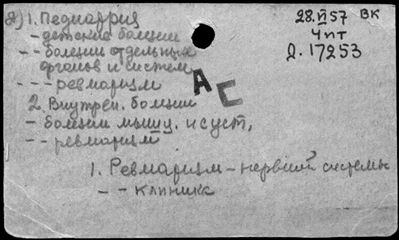 д) 1. Педиатрия
28.VI 57 ВК
- детские болезни
4 пт
-- болезни отдельных
Д. 17253
органов и систем
--- ревматизм
АС
2. Внутрен. болезни
- болезни мышц. и суст,
-- ревматизм
1. Ревматизм - нервной системы
-- клиника